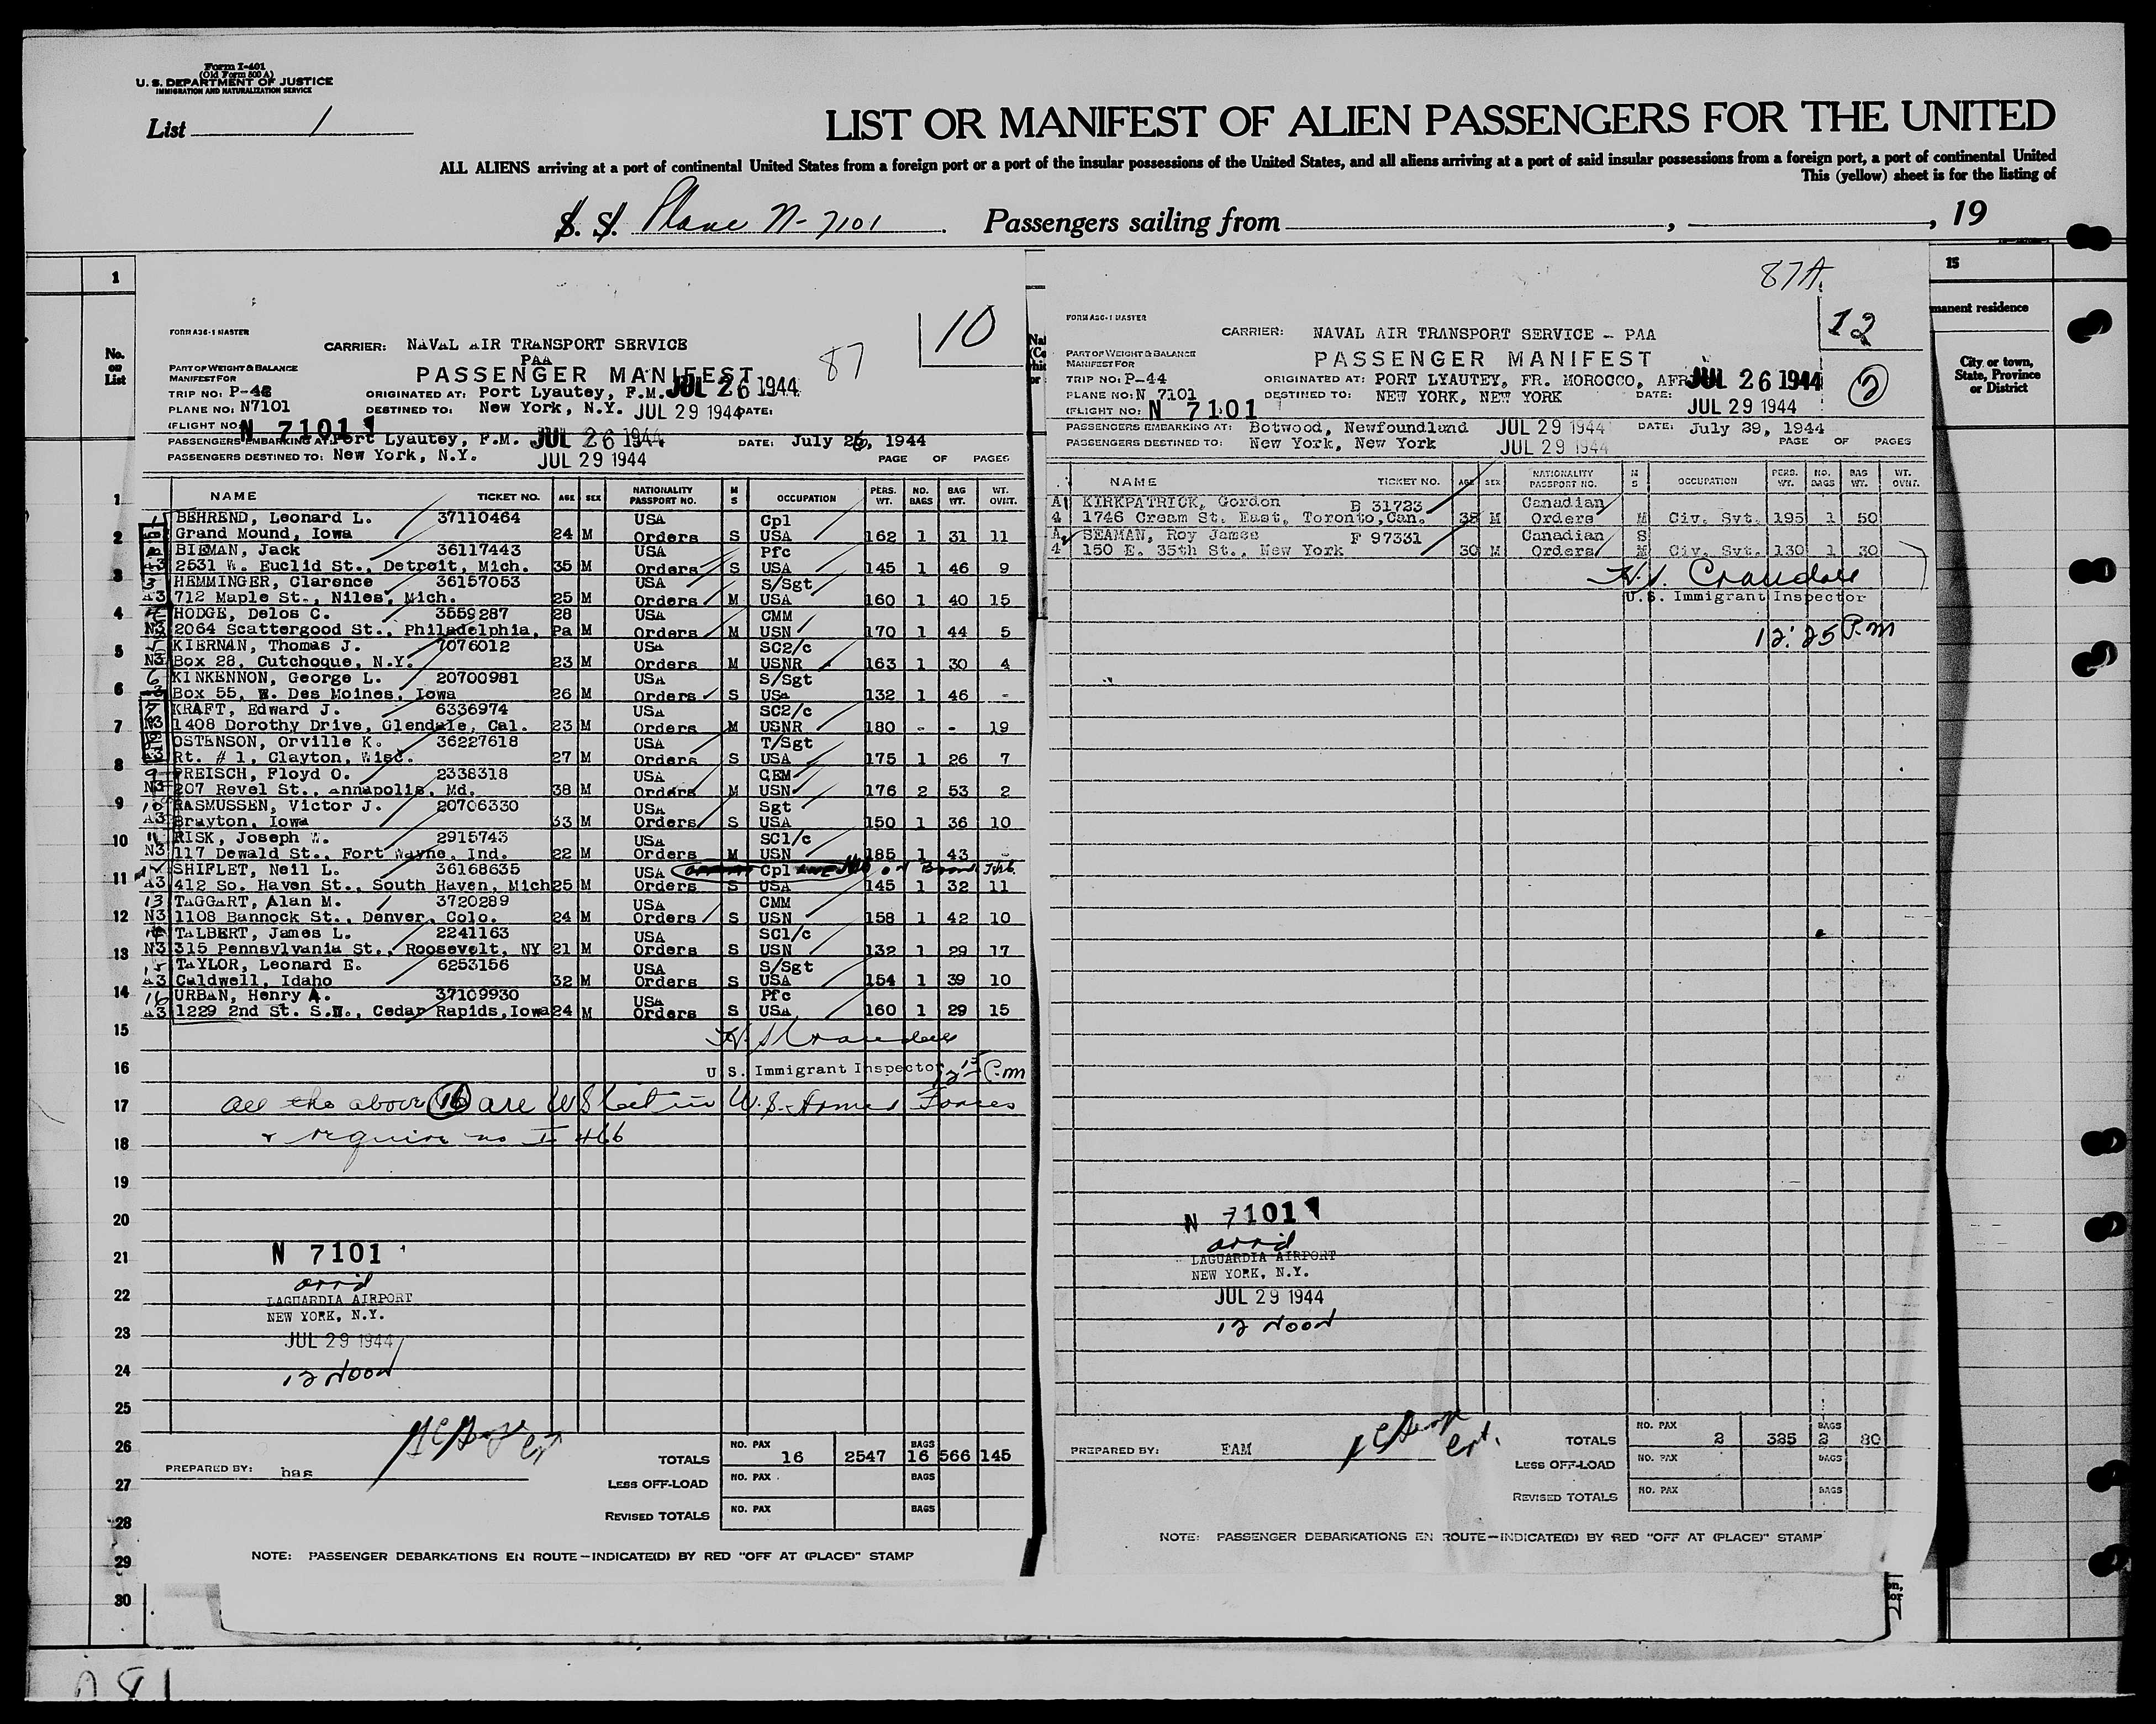 Form I-401
(Old Form 500 A)
U. S. DEPARTMENT OF JUSTICE
IMMIGRATION AND NATURALIZATION SERVICE
List 1
LIST OR MANIFEST OF ALIEN PASSENGERS FOR THE UNITED
ALL ALIENS arriving at a port of continental United States from a foreign port or a port of the insular possessions of the United States, and all aliens arriving at a port of said insular possessions from a foreign port, a port of continental United
This (yellow) sheet is for the listing of
S. S. Plane N-7101 Passengers sailing from , , 19
1
No. on List
10
87
FORM A36-1 MASTER
CARRIER: NAVAL AIR TRANSPORT SERVICE
PAA
PART OF WEIGHT & BALANCE
MANIFEST FOR
PASSENGER MANIFEST
TRIP NO: P-48 ORIGINATED AT: Port Lyautey, F.M. JUL 26 1944
PLANE NO: N7101 DESTINED TO: New York, N.Y. JUL 29 1944 DATE:
(FLIGHT NO: N 7101
PASSENGERS EMBARKING AT: Port Lyautey, F.M. JUL 26 1944 DATE: July 26, 1944
PASSENGERS DESTINED TO: New York, N.Y. JUL 29 1944 PAGE OF PAGES
NAME TICKET NO. AGE SEX NATIONALITY PASSPORT NO. M S OCCUPATION PERS. WT. NO. BAGS BAG WT. WT. OVNT.
1 BEHREND, Leonard L. 37110464 USA Cpl
Grand Mound, Iowa 24 M Orders S USA 162 1 31 11
BIEMAN, Jack 36117443 USA Pfc
2531 W. Euclid St., Detroit, Mich. 35 M Orders S USA 145 1 46 9
3 HEMMINGER, Clarence 36157053 USA S/Sgt
A3 712 Maple St., Niles, Mich. 25 M Orders M USA 160 1 40 15
4 HODGE, Delos C. 3559287 28 USA CMM
N3 2064 Scattergood St., Philadelphia, Pa M Orders M USN 170 1 44 5
5 KIERNAN, Thomas J. 7076012 USA SC2/c
N3 Box 28, Cutchoque, N.Y. 23 M Orders M USNR 163 1 30 4
6 KINKENNON, George L. 20700981 USA S/Sgt
Box 55, W. Des Moines, Iowa 26 M Orders S USA 132 1 46 -
7 KRAFT, Edward J. 6336974 USA SC2/c
N3 1408 Dorothy Drive, Glendale, Cal. 23 M Orders M USNR 180 - - 19
OSTENSON, Orville K. 36227618 USA T/Sgt
A3 Rt. # 1, Clayton, Wisc. 27 M Orders S USA 175 1 26 7
9 PREISCH, Floyd O. 2338318 USA CEM
N3 207 Revel St., Annapolis, Md. 38 M Orders M USN 176 2 53 2
10 RASMUSSEN, Victor J. 20706330 USA Sgt
A3 Brayton, Iowa 33 M Orders S USA 150 1 36 10
11 RISK, Joseph W. 2915743 USA SC1/c
N3 117 Dewald St., Fort Wayne, Ind. 22 M Orders M USN 185 1 43 -
12 SHIFLET, Neil L. 36168635 USA Cpl
A3 412 So. Haven St., South Haven, Mich 25 M Orders S USA 145 1 32 11
13 TAGGART, Alan M. 3720289 USA CMM
N3 1108 Bannock St., Denver, Colo. 24 M Orders S USN 158 1 42 10
14 TALBERT, James L. 2241163 USA SC1/c
N3 315 Pennsylvania St., Roosevelt, NY 21 M Orders S USN 132 1 29 17
15 TAYLOR, Leonard E. 6253156 USA S/Sgt
A3 Caldwell, Idaho 32 M Orders S USA 154 1 39 10
16 URBAN, Henry A. 37109930 USA Pfc
A3 1229 2nd St. S.W., Cedar Rapids, Iowa 24 M Orders S USA 160 1 29 15
H. S. Crandall
U. S. Immigrant Inspector 12 15 P.m
all the above 16 are US Cit in U.S. Armed Forces
& require no I 466
N 7101
arrd
LAGUARDIA AIRPORT
NEW YORK, N.Y.
JUL 29 1944
12 Noon
PREPARED BY: has
TOTALS NO. PAX 16 2547 BAGS 16 566 145
LESS OFF-LOAD NO. PAX BAGS
REVISED TOTALS NO. PAX BAGS
NOTE: PASSENGER DEBARKATIONS EN ROUTE—INDICATE(D) BY RED "OFF AT (PLACE)" STAMP
1
2
3
4
5
6
7
8
9
10
11
12
13
14
15
16
17
18
19
20
21
22
23
24
25
26
27
28
29
30
87A
12
2
FORM A36-1 MASTER
CARRIER: NAVAL AIR TRANSPORT SERVICE - PAA
PART OF WEIGHT & BALANCE
MANIFEST FOR
PASSENGER MANIFEST
TRIP NO: P-44 ORIGINATED AT: PORT LYAUTEY, FR. MOROCCO, AFR JUL 26 1944
PLANE NO: N 7101 DESTINED TO: NEW YORK, NEW YORK DATE: JUL 29 1944
(FLIGHT NO: N 7101
PASSENGERS EMBARKING AT: Botwood, Newfoundland JUL 29 1944 DATE: July 29, 1944
PASSENGERS DESTINED TO: New York, New York JUL 29 1944 PAGE OF PAGES
NAME TICKET NO. AGE SEX NATIONALITY PASSPORT NO. M S OCCUPATION PERS. WT. NO. BAGS BAG WT. WT. OVNT.
A KIRKPATRICK, Gordon B 31723 Canadian
4 1746 Cream St. East, Toronto, Can. 35 M Orders M Civ. Svt. 195 1 50
A SEAMAN, Roy James F 97331 Canadian S
4 150 E. 35th St., New York 30 M Orders M Civ. Svt. 130 1 30
H. S. Crandall
U.S. Immigrant Inspector
12:25 P.m
N 7101
arrd
LAGUARDIA AIRPORT
NEW YORK, N.Y.
JUL 29 1944
12 Noon
PREPARED BY: EAM
TOTALS NO. PAX 2 325 BAGS 2 80
LESS OFF-LOAD NO. PAX BAGS
REVISED TOTALS NO. PAX BAGS
NOTE: PASSENGER DEBARKATIONS EN ROUTE—INDICATE(D) BY RED "OFF AT (PLACE)" STAMP
15
manent residence
City or town,
State, Province
or District